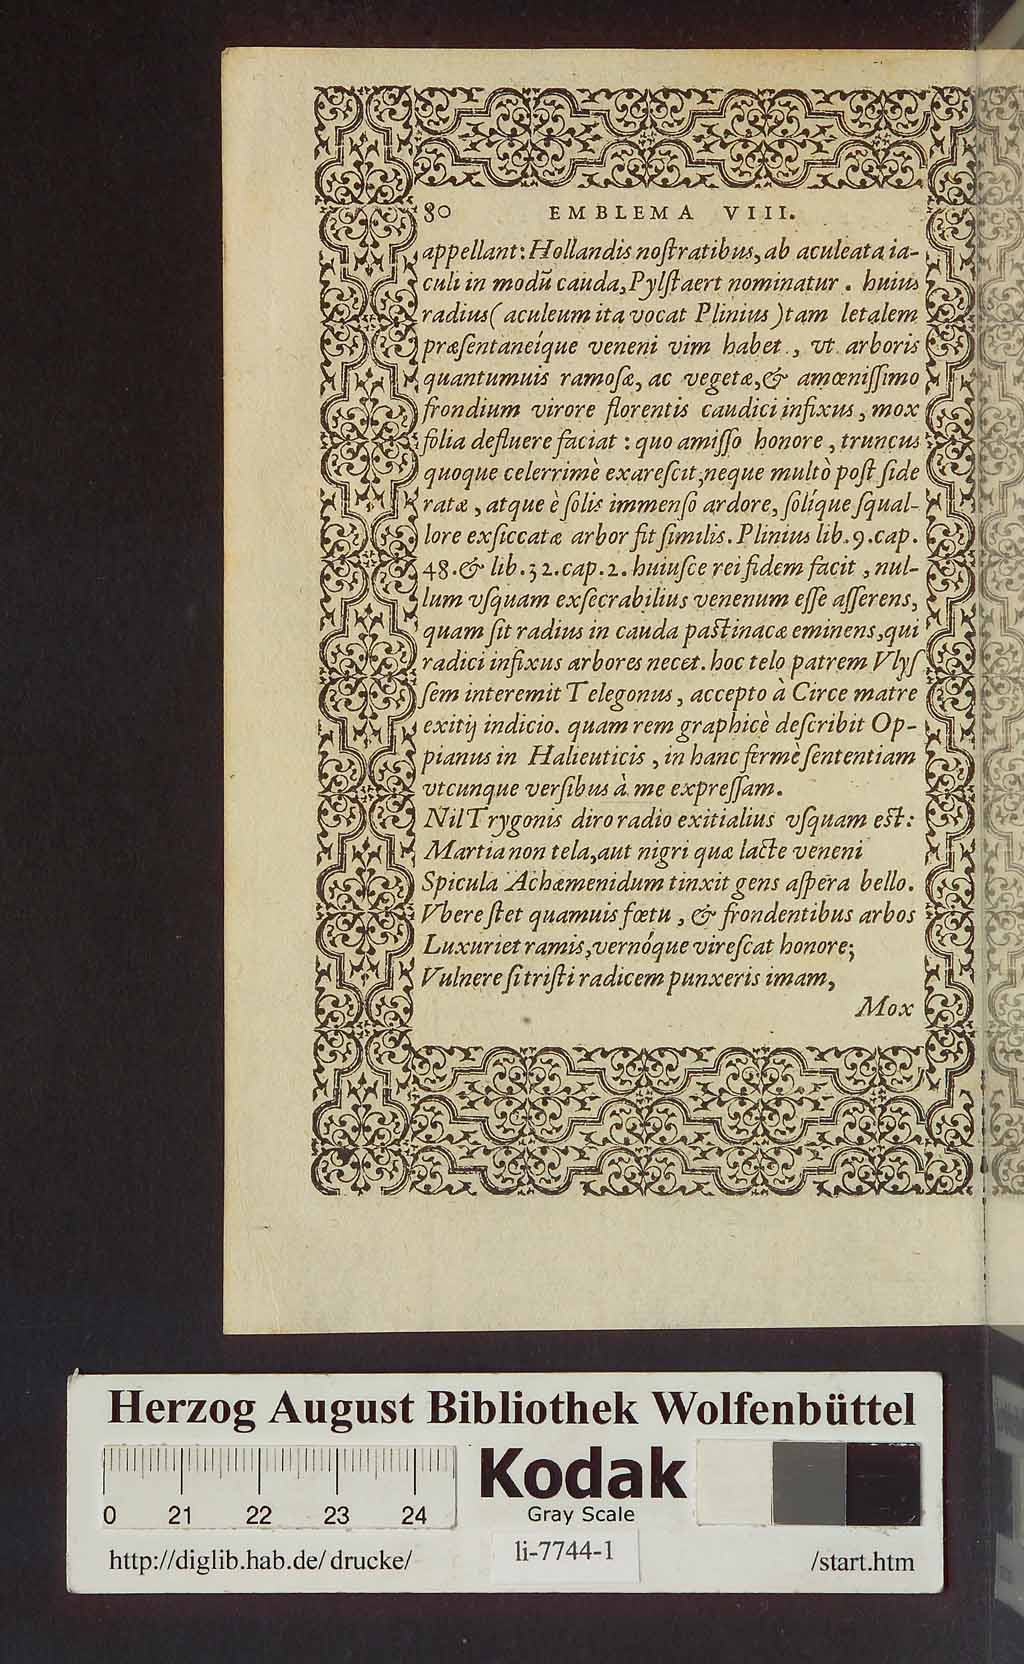 80 EMBLEMA VIII.
appellant: Hollandis noſtratibus, ab aculeata ia-
culi in modū cauda, Pylſtaert nominatur. huius
radius (aculeum ita vocat Plinius) tam letalem
præſentaneíque veneni vim habet, vt arboris
quantumuis ramoſæ, ac vegetæ, & amœniſſimo
frondium virore florentis caudici infixus, mox
folia defluere faciat: quo amiſſo honore, truncus
quoque celerrimè exareſcit, neque multò poſt ſide
ratæ, atque è ſolis immenſo ardore, ſolíque ſqual-
lore exſiccatæ arbor fit ſimilis. Plinius lib. 9. cap.
48. & lib. 32. cap. 2. huiuſce rei fidem facit, nul-
lum vſquam exſecrabilius venenum eſſe aſſerens,
quam ſit radius in cauda paſtinacæ eminens, qui
radici infixus arbores necet. hoc telo patrem Vlyſ
ſem interemit Telegonus, accepto à Circe matre
exitij indicio. quam rem graphicè deſcribit Op-
pianus in Halieuticis, in hanc fermè ſententiam
vtcunque verſibus à me expreſſam.
Nil Trygonis diro radio exitialius vſquam eſt:
Martia non tela, aut nigri quæ lacte veneni
Spicula Achæmenidum tinxit gens aſpera bello.
Vbere ſtet quamuis fœtu, & frondentibus arbos
Luxuriet ramis, vernóque vireſcat honore;
Vulnere ſi triſti radicem punxeris imam,
Mox
Herzog August Bibliothek Wolfenbüttel
0 21 22 23 24
Kodak
Gray Scale
http://diglib.hab.de/drucke/ li-7744-1 /start.htm